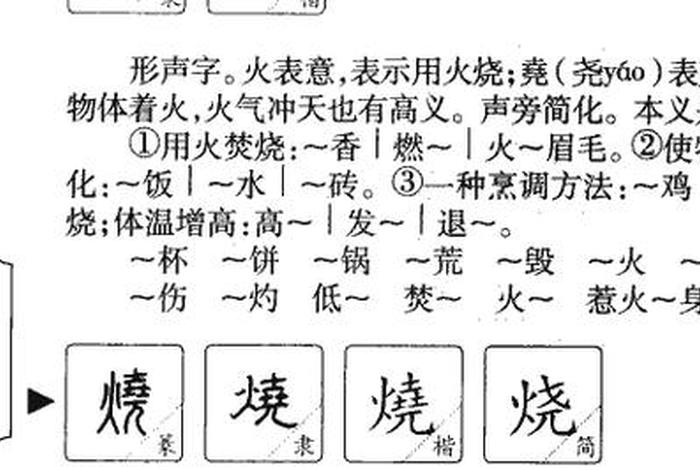 形声字。火表意,表示用火烧;堯(尧yáo)表
物体着火,火气冲天也有高义。声旁简化。本义
①用火焚烧:~香|燃~|火~眉毛。②使
化:~饭|~水|~砖。③一种烹调方法:~鸡
烧;体温增高:高~|发~|退~。
~杯 ~饼 ~锅 ~荒 ~毁 ~火 ~
~伤 ~灼 低~ 焚~ 火~ 惹火~身
燒 燒 燒 烧
篆 隶 楷 简